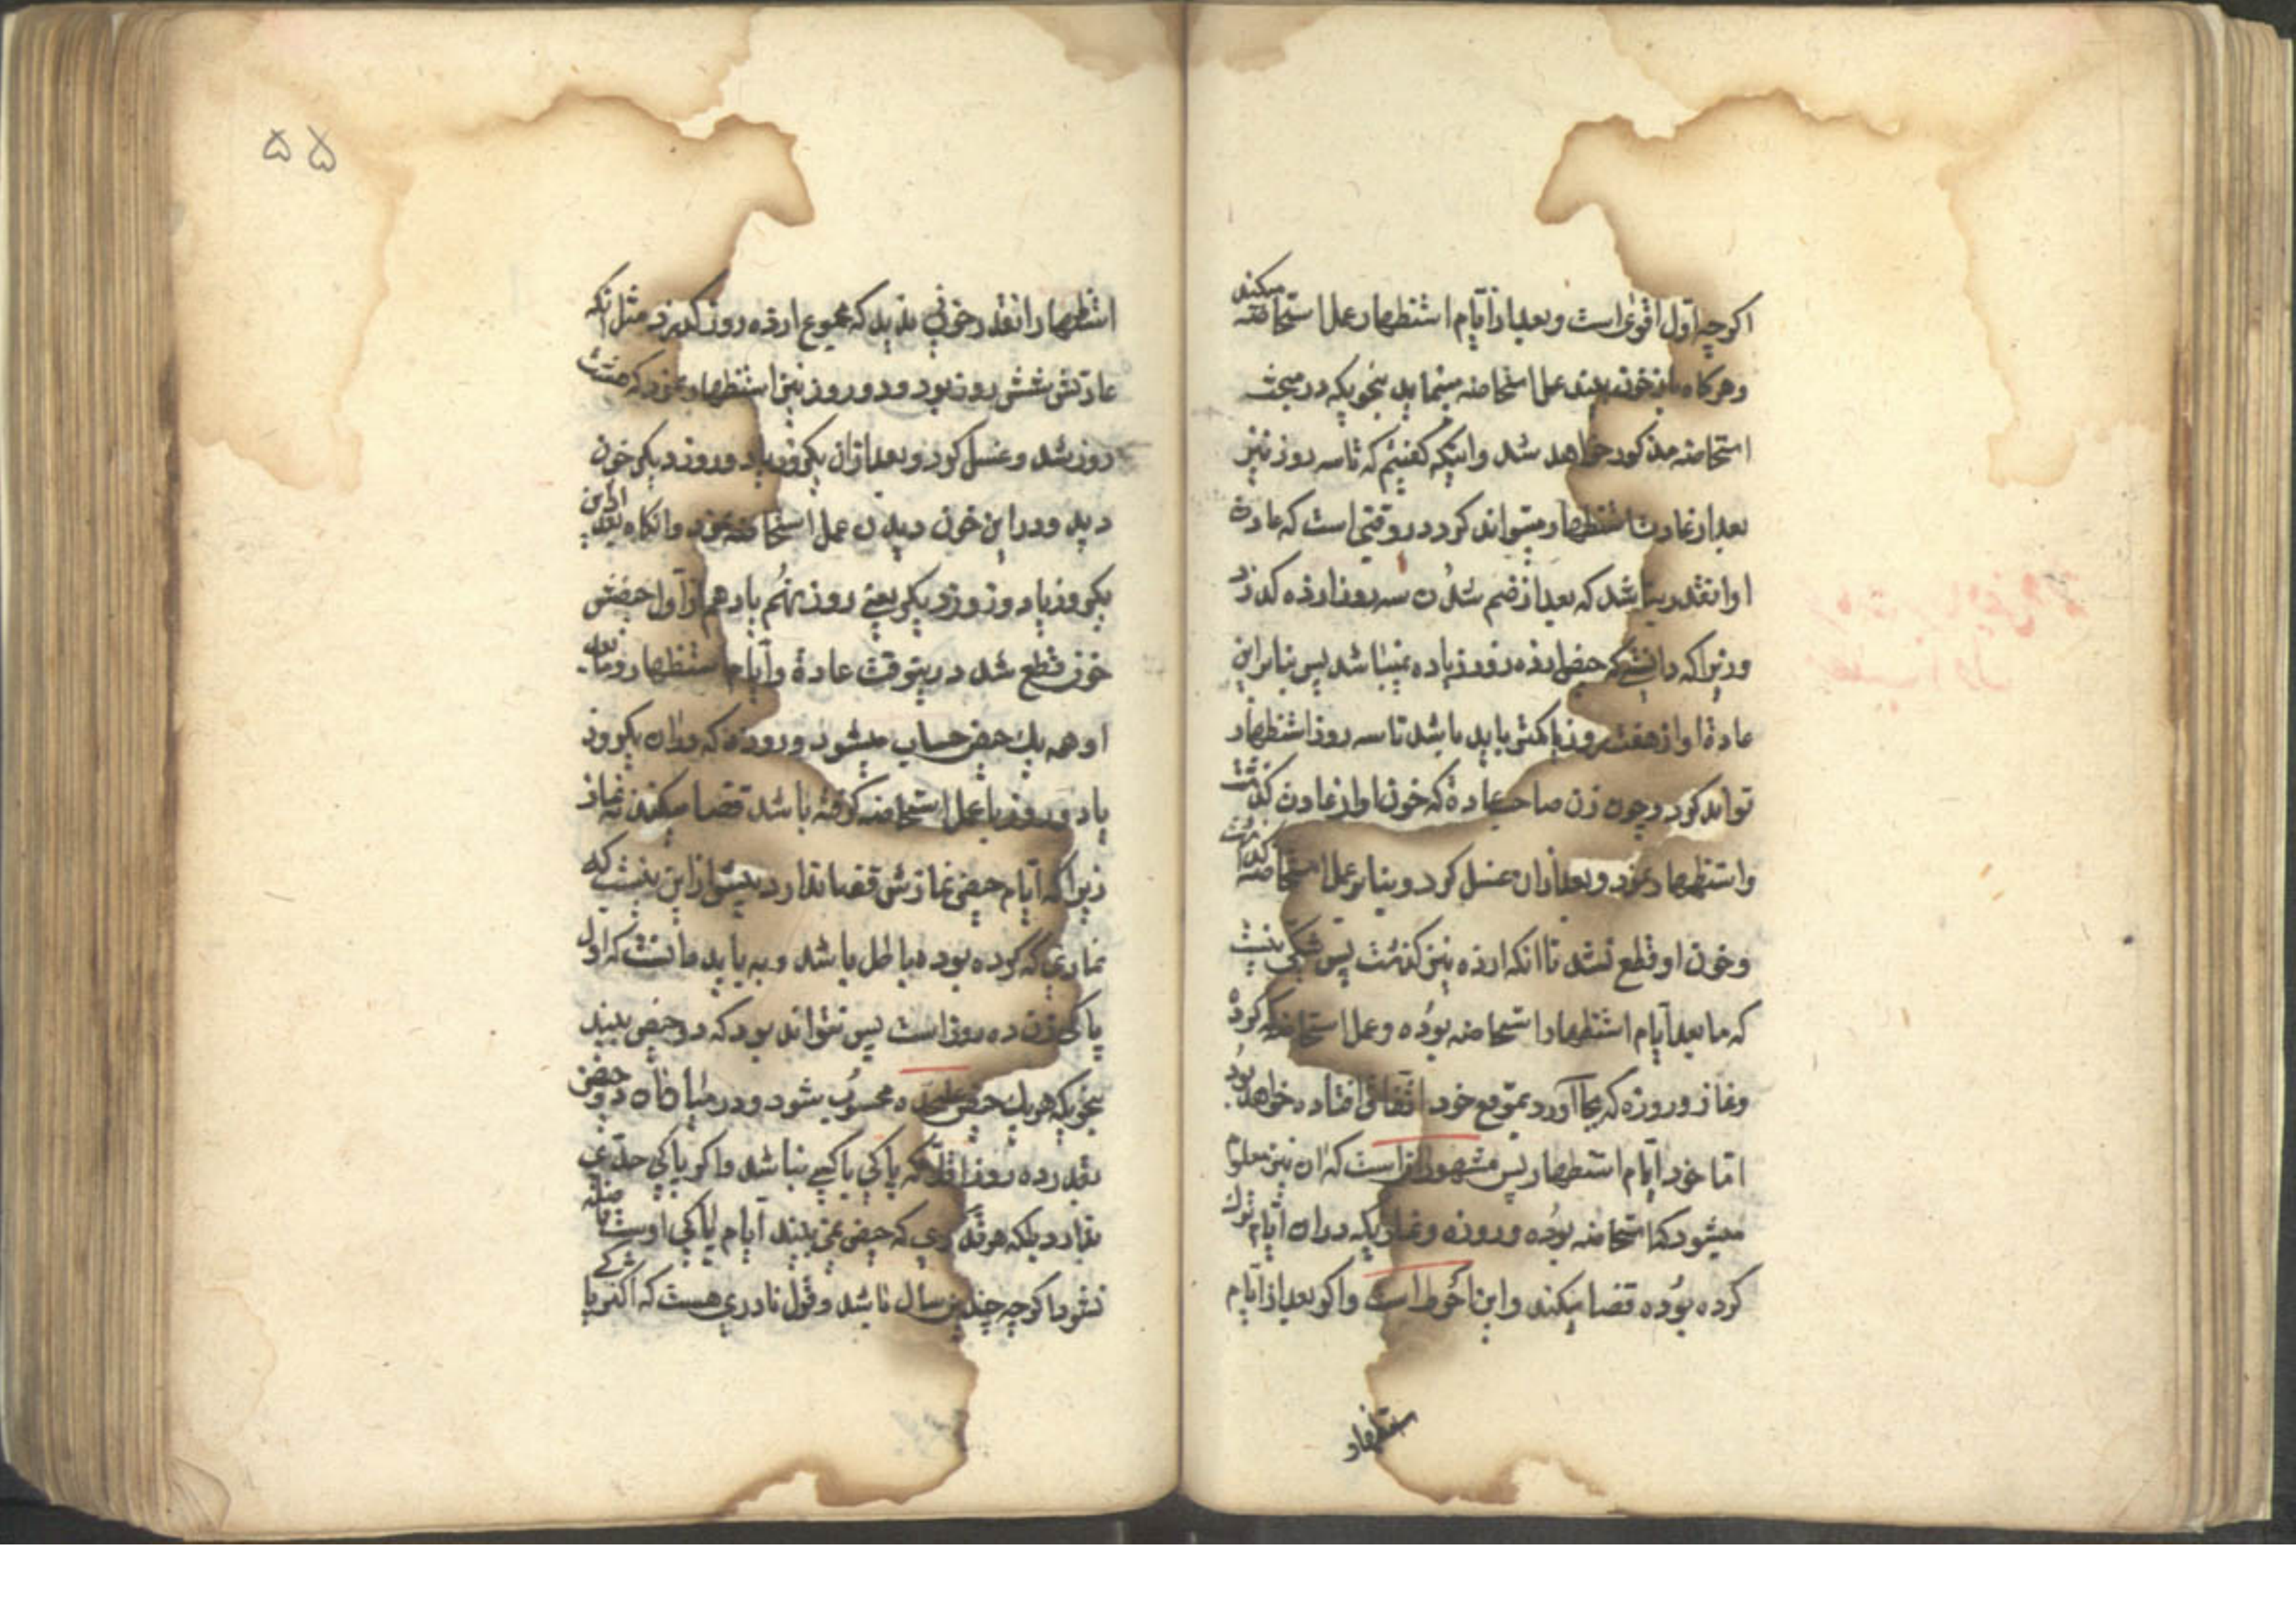 اگرچه اول اقوی است و بعد از ایام استظهار عمل استحاضه میکند
و هرگاه باز خون بیند عمل استحاضه مینماید بنحویکه در مبحث
استحاضه مذکور خواهد شد و اینکه گفتیم که تا سه روز نیز
بعد از عادت استظهار میتواند کرد در وقتی است که عادت
او انقدر باشد که بعد از ضم شدن سه روز از ده گذرد
و زیرا که دانستی که حیض از ده روز زیاده نمیباشد پس بنابراین
عادة او از هفت روز یا کمتر باید باشد تا سه روز استظهار
تواند کرد و چون زن صاحب عادة که خون او از عادت گذشت
و استظهار نمود و بعد از ان غسل کرد و بنا بر عمل استحاضه گذاشت
و خون او قطع نشد تا انکه از ده نیز گذشت پس شکی نیست
که ما بعد ایام استظهار استحاضه بوده و عمل استحاضه که کرده
و نماز و روزه که بجا آورد بموقع خود اتفاق افتاده خواهد بود
اما خود ایام استظهار پس مشهور انست که ان نیز معلوم
میشود که استحاضه بوده و روزه و نمازیکه در ان ایام ترک
کرده بوده قضا میکند و این احوط است و اگر بعد از ایام
ستظهار
۵۵
استظهار انقدر خونی بدید که مجموع از ده روز گذرد مثل انکه
عادتش شش روز بود و دو روز نیز استظهار نمود که هشت
روز شد و غسل کرد و بعد از ان یکروز یا دو روز دیگر خون
دید و در این خون دیدن عمل استحاضه نمود و انگاه بعد از این
یکروز یا دو روز دیگر یعنی روز نهم یا دهم از اول حیضش
خون قطع شد در ینوقت عادة و ایام استظهار و ما بعد
او همه یک حیض حساب میشود و روزه که در ان یکروز
یا دو روز با عمل استحاضه گرفته باشد قضا میکند نه نماز
زیرا که ایام حیض نمازش قضا ندارد بیش از این نیست که
نمازی که کرده بود هبا طل باشد و به باید دانست که اول
پاکی زن ده روز است پس نتواند بود که دو حیض بیند
بنحویکه هر یک حیض علیحده محسوب شود و در میان ان دو حیض
بقدر ده روز اقلا که پاکی پاکیی نباشد و اکثر پاکی حدی
ندارد بلکه هر قدری که حیض نمی بیند ایام پاکی اوست
نشود اگرچه چندین سال باشد و قول نادری هست که اکثر پا